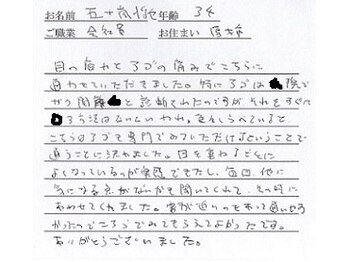 お名前 五十嵐 年齢 34
ご職業 会社員 お住まい 原市
目の疲れとアゴの痛みでこちらに
通わせていただきました。特にアゴは 院で
がっ関節 と診断されたのですが それをすぐに
る方法はないといわれ、色々しらべていると
こちらはアゴも専門でみていただけるということで
通うことに決めました。日を重ねるごとに
よくなっているのが実感できたし、毎回、他に
気になる点がないかを聞いてくれて、その時に
あわせてくれました。家が近いのもあって通いやす
かったのでこちらでみてもらえてよかったです。
ありがとうございました。